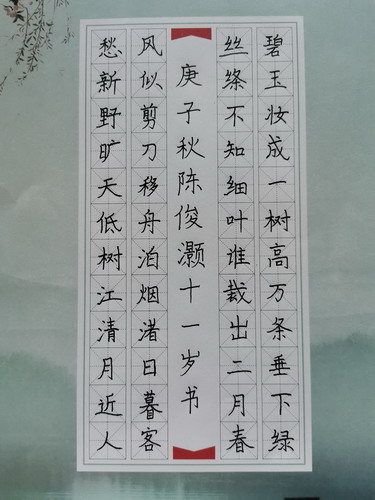 碧玉妆成一树高万条垂下绿
丝绦不知细叶谁裁出二月春
庚子秋陈俊灏十一岁书
风似剪刀移舟泊烟渚日暮客
愁新野旷天低树江清月近人